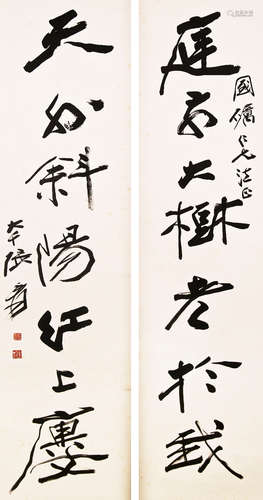 庭前大樹老於我
國仁兄法正
天外斜陽紅上廔
大千張爰